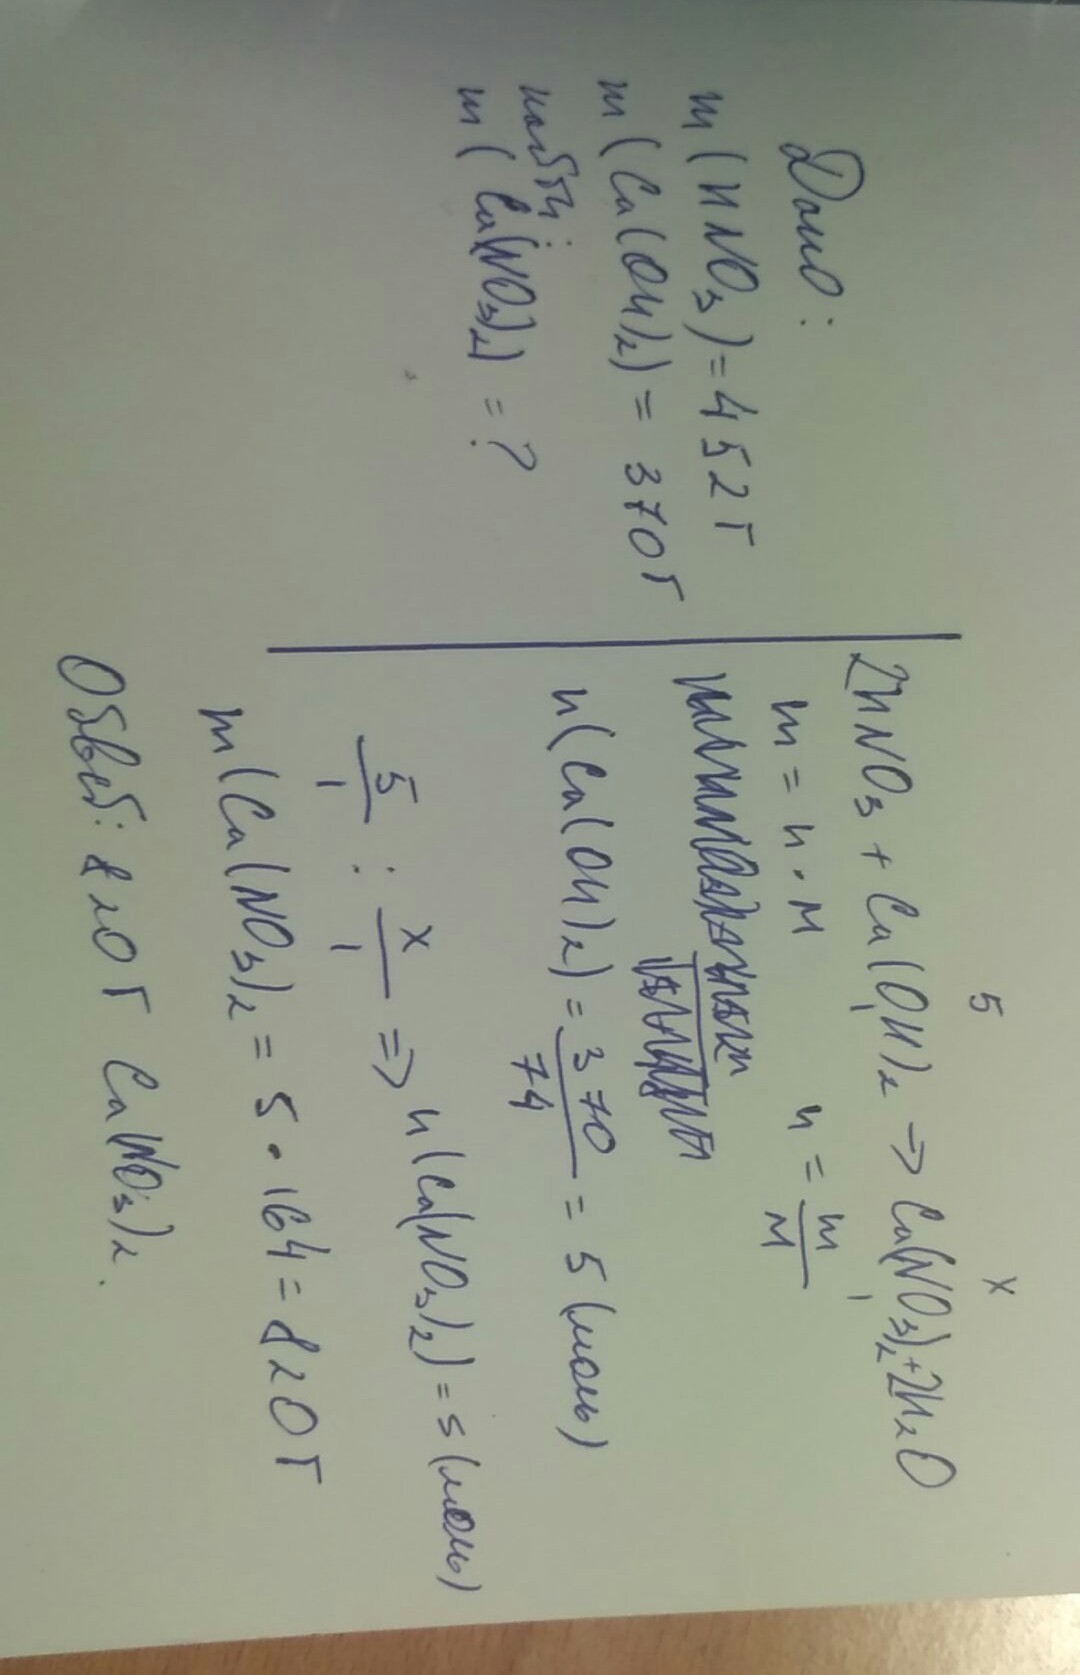 Дано:
m(HNO3)=452г
m(Ca(OH)2)=370г
найти:
m(Ca(NO3)2)=?
5 x
2HNO3+Ca(OH)2→Ca(NO3)2+2H2O
m=n·M n=m/M
n(Ca(OH)2)=370/74=5(моль)
5/1:x/1=>n(Ca(NO3)2)=5(моль)
m(Ca(NO3)2=5·164=820г
Ответ: 820г Ca(NO3)2.